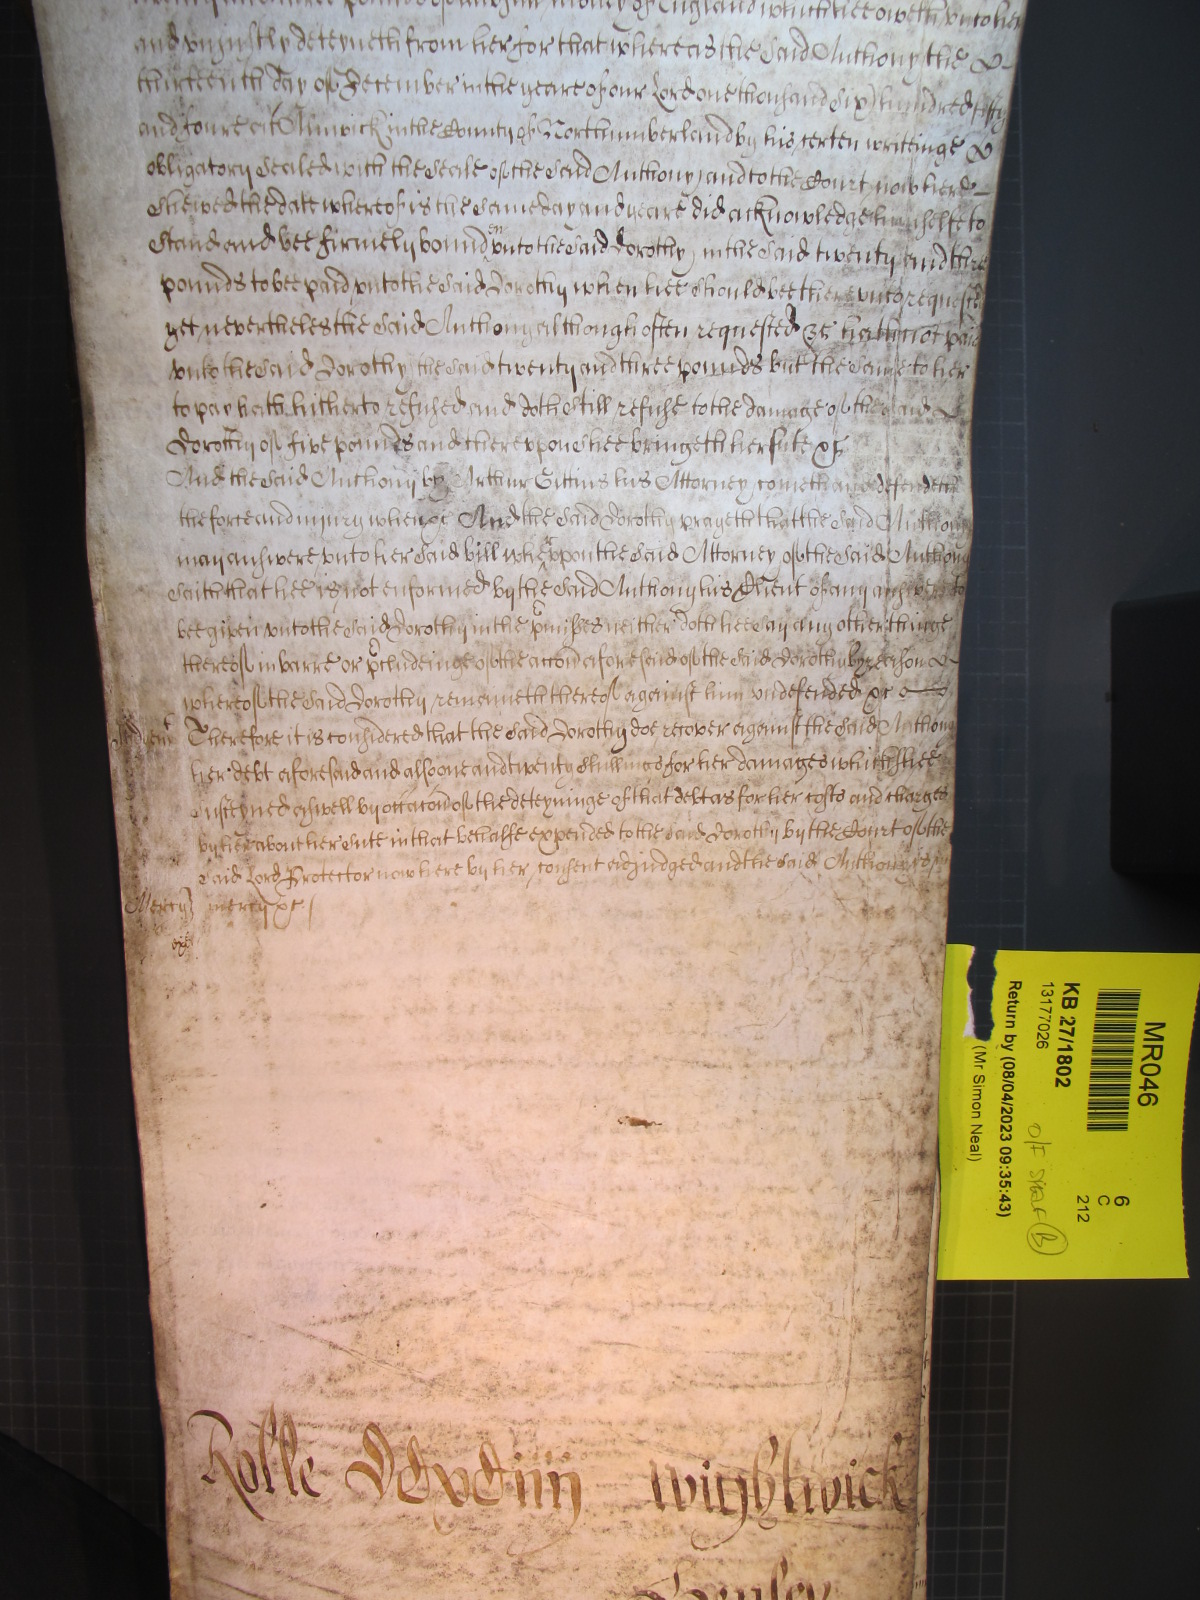 twenty and three pounds of lawfull money of England which hee oweth unto her
and uniustly deteyneth from her for that whereas the said Anthony the
thirteenth day of December in the yeare of our Lord one thousand six hundred fifty
and foure att Alnwick in the County of Northumberland by his certen writeinge
obligatory sealed with the seale of the said Anthony and to the Court now here
shewed the date whereof is the same day and yeare did acknowledge himselfe to
stand and bee firmely bounden unto the said Dorothy in the said twenty and three
pounds to bee paid unto the said Dorothy when hee should bee thereunto requested
yet nevertheles the said Anthony although often requested &c hath not paid
unto the said Dorothy the said twenty and three pounds but the same to her
to pay hath hitherto refused and doth still refuse to the damage of the said
Dorothy of five pounds and thereupon shee bringeth her sute &c
And the said Anthony by Arthur Gittins his Attorney cometh and defendeth
the force and iniury when &c And the said Dorothy prayeth that the said Anthony
may answere unto her said bill whereupon the said Attorney of the said Anthony
saith that hee is not enformed by the said Anthony his Client of any answere to
bee given unto the said Dorothy in the pmisses neither doth hee say any other thinge
thereof in barre or pcludeinge of the accon aforesaid of the said Dorothy by reason
whereof the said Dorothy remaineth thereof against him undefended &c
Therefore it is considered that the said Dorothy doe recover against the said Anthony
her debt aforesaid and alsoe one and twenty shillings for her damages which shee
susteyned aswell by occacon of the deteyninge of that debt as for her costs and charges
by her about her sute in that behalfe expended to the said Dorothy by the Court of the
said Lord Protector now here by her consent adiudged and the said Anthony is in
Mercy mercy &c
Rolle
Wightwick
MR046
KB 27/1802
13177026
Return by (08/04/2023 09:35:43)
(Mr Simon Neal)
6
C
212
O/F STAFF (B)